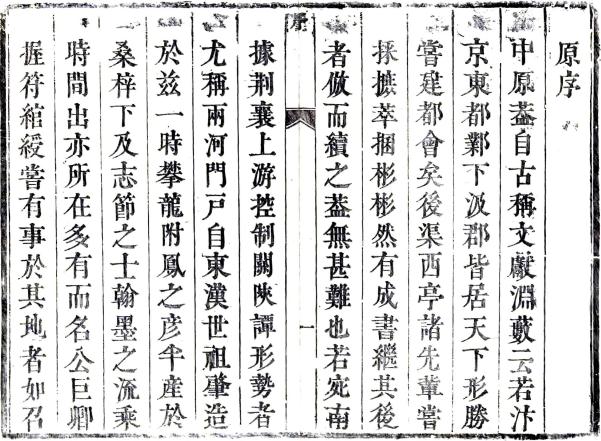 原序
中原葢自古稱文獻淵藪云若汴
京東都鄴下汲郡皆居天下形勝
嘗建都會矣後渠西亭諸先輩嘗
採摭萃捆彬彬然有成書繼其後
者倣而續之葢無甚難也若宛南
序
一
據荆襄上游控制關陜譚形勢者
尤稱兩河門戸自東漢世祖肇造
於兹一時攀龍附鳳之彦半産於
桑梓下及志節之士翰墨之流乘
時間出亦所在多有而名公巨卿
握符綰綬嘗有事於其地者如召